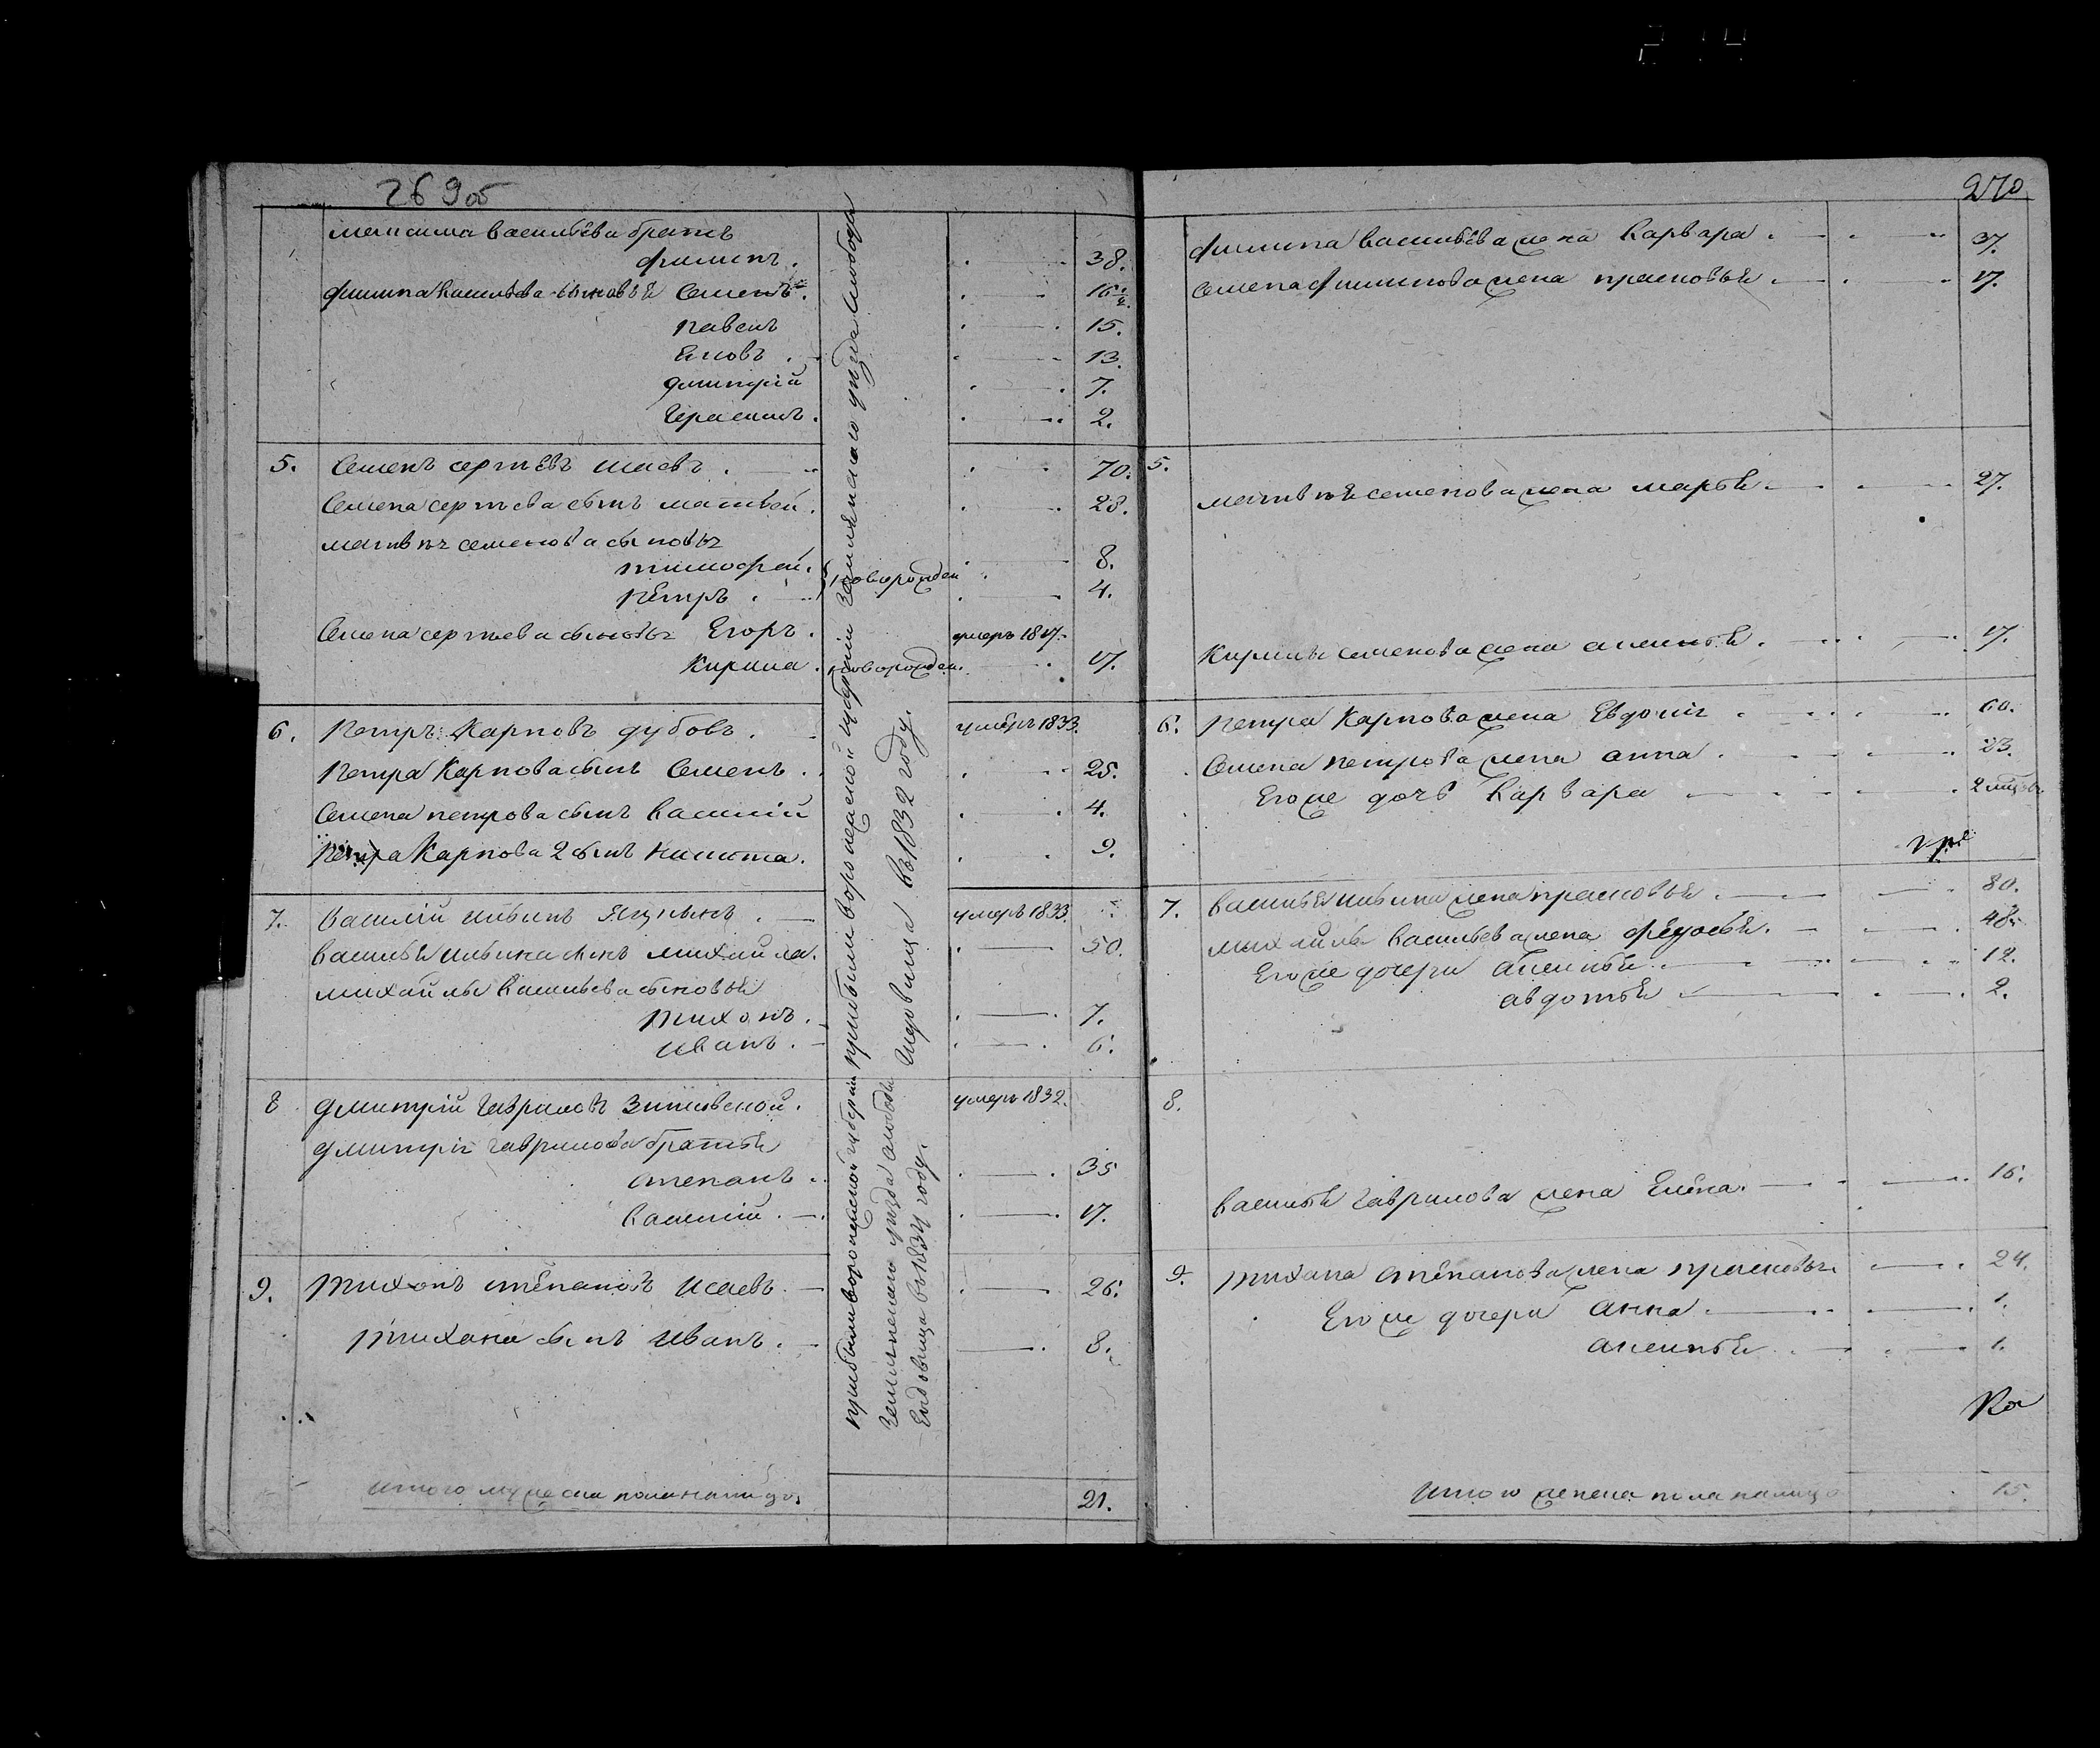 269об
Максима Васильева братъ
Филипъ. 38.
Филипа Васильева сыновья Семенъ. 16½
Павелъ 15.
Яковъ. 13.
Дмитрій 7.
Герасимъ. 2.
5. Семенъ Сергѣевъ 70.
Семена Сергѣева сынъ Матвей. 28.
Матвѣя Семенова сыновья
Тимофей. 8.
Петръ. новорожден 4.
Семена Сергѣева сыновья Егоръ. умеръ 1817.
Кирила. новорожден. 17.
6. Петръ Карповъ Дубовъ. умеръ 1833.
Петра Карпова сынъ Семенъ. 25.
Семена Петрова сынъ Василій 4.
Петра Карпова 2 сынъ Никита. 9.
7. Василій Ильинъ умеръ 1833.
Василья Ильина сынъ Михайла. 50.
Михайлы Васильева сыновья
Тихонъ. 7.
Иванъ. 6.
8 Дмитрій Гавриловъ умеръ 1832.
Дмитрія Гаврилова братья
Степанъ. 35
Василій. 17.
9. Тихонъ Степановъ Исаевъ. 26.
Тихона сынъ Иванъ. 8.
Итого мужеска пола налицо 21.
прибыли Воронежской губерніи Землянскаго уѣзда слободы
въ 1832 году.
прибыли Воронежской губерніи
Землянскаго уѣзда слободы
Ендовища въ 1834 году.
270
Филипа Васильева жена Варвара. 37.
Семена Филипова жена Прасковья 17.
5.
Матвѣя Семенова жена Марья. 27.
Кирилы Семенова жена Аксинья. 17.
6. Петра Карпова жена Евдокія 60.
Семена Петрова жена Анна 23.
Егоже дочь Варвара
7. Василья Ильина жена Прасковья 80.
Михайлы Васильева жена Федосья. 48.
Егоже дочери Аксинья 12.
Авдотья 2.
8.
Василья Гаврилова жена Елена. 16.
9. Тихона Степанова жена Прасковья 24.
Егоже дочери Анна 1.
Аксинья 1.
Итого женска пола налицо 15.